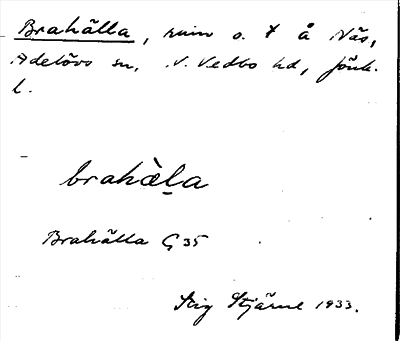 Brahälla, ruin o. t å Näs,
Adelövs sn, N. Vedbo hd, Jönk.
l.
brahàl̠a
Brahälla G 35
Stig Stjärne 1933.